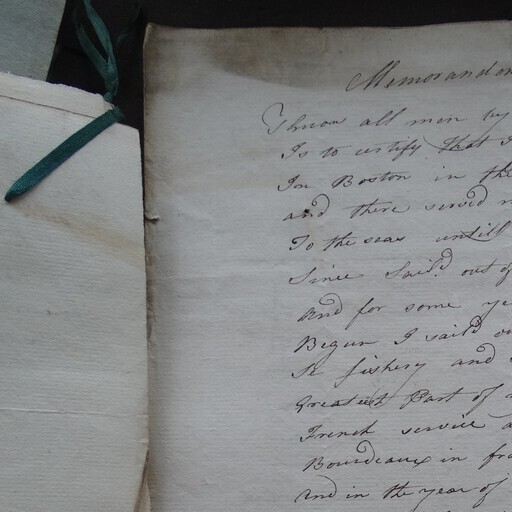 Memorandom
Know all men by
Is to certify that I
In Boston in the
and there served m
To the seas untill
Since Sail.d out of
and for some ye
Begun I sail'd ou
fishery and
Greatest Part of
French service a
Bourdeaux in fra
And in the year of